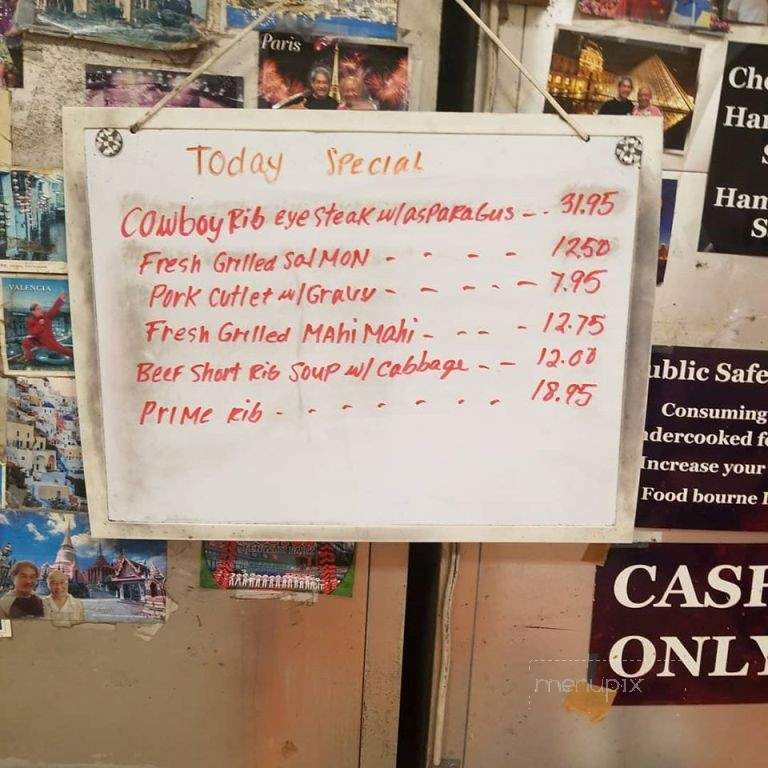 Paris
Today Special
Cowboy Rib eye Steak w/asparagus - - 31.95
Fresh Grilled Salmon - - - - 12.50
Pork Cutlet w/Gravy - - - - - 7.95
Fresh Grilled Mahi Mahi - - - - 12.75
Beef Short Rib Soup w/ Cabbage - - 12.00
Prime Rib - - - - - - - 18.95
VALENCIA
FENWAY PARK
Ham
S
Ham
S
ublic Safe
Consuming
ndercooked f
Increase your
Food bourne I
CASH
ONLY
menupix